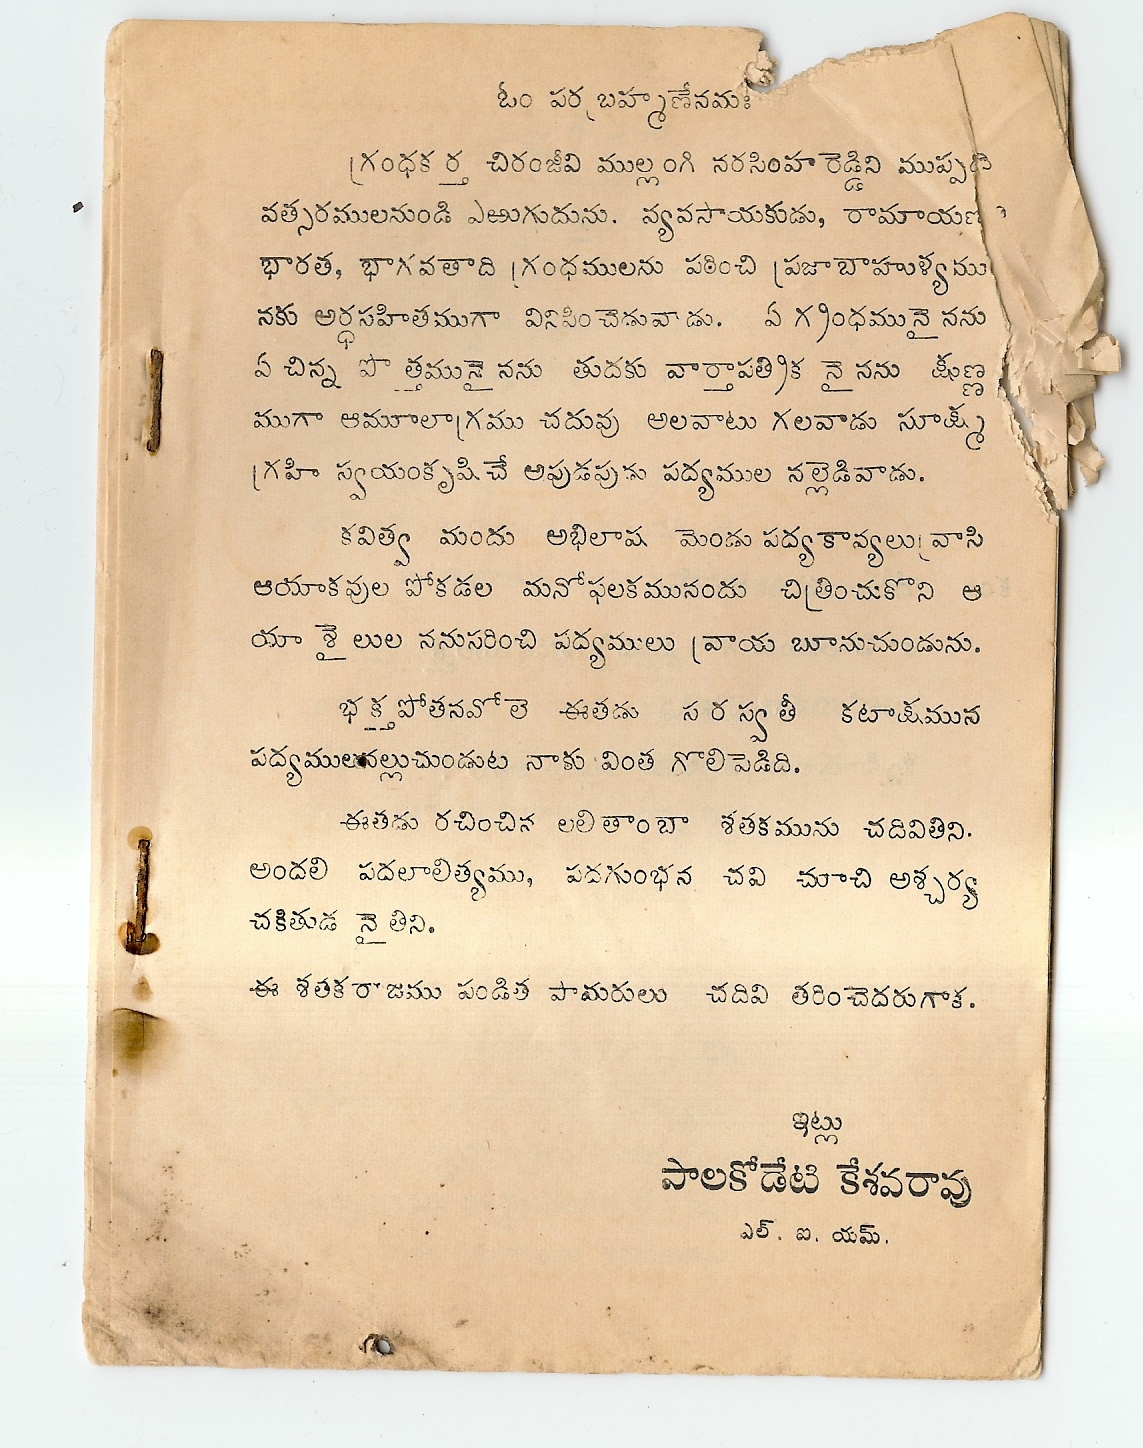 ఓం పర బ్రహ్మణేనమః
గ్రంధకర్త చిరంజీవి ముల్లంగి నరసింహారెడ్డిని
వత్సరములనుండి ఎఱుగుదును. వ్యవసాయకుడు, రామాయణ
భారత, భాగవతాది గ్రంధములను పఠించి ప్రజాబాహుళ్యము
నకు అర్ధసహితముగా వినిపించెడువాడు. ఏ గ్రంధమునైనను
ఏ చిన్న పొత్తమునైనను తుదకు వార్తాపత్రిక నైనను క్షుణ్ణ
ముగా ఆమూలాగ్రము చదువు అలవాటు గలవాడు సూక్ష్మ
గ్రహి స్వయంకృషిచే అపుడపుడు పద్యముల నల్లెడివాడు.
కవిత్వ మందు అభిలాష మెండు పద్యకావ్యలు వ్రాసి
ఆయాకవుల పోకడల మనోఫలకమునందు చిత్రించుకొని ఆ
యా శైలుల ననుసరించి పద్యములు వ్రాయ బూనుచుండును.
భక్తపోతనవోలె ఈతడు సరస్వతీ కటాక్షమున
పద్యములనల్లుచుండుట నాకు వింత గొలిపెడిది.
ఈతడు రచించిన లలితాంబా శతకమును చదివితిని.
అందలి పదలాలిత్యము, పదగుంభన చవి చూచి అశ్చర్య
చకితుడ నైతిని.
ఈ శతకరాజము పండిత పామరులు చదివి తరించెదరుగాక.
ఇట్లు
పాలకోడేటి కేశవరావు
ఎల్. ఐ. యమ్.